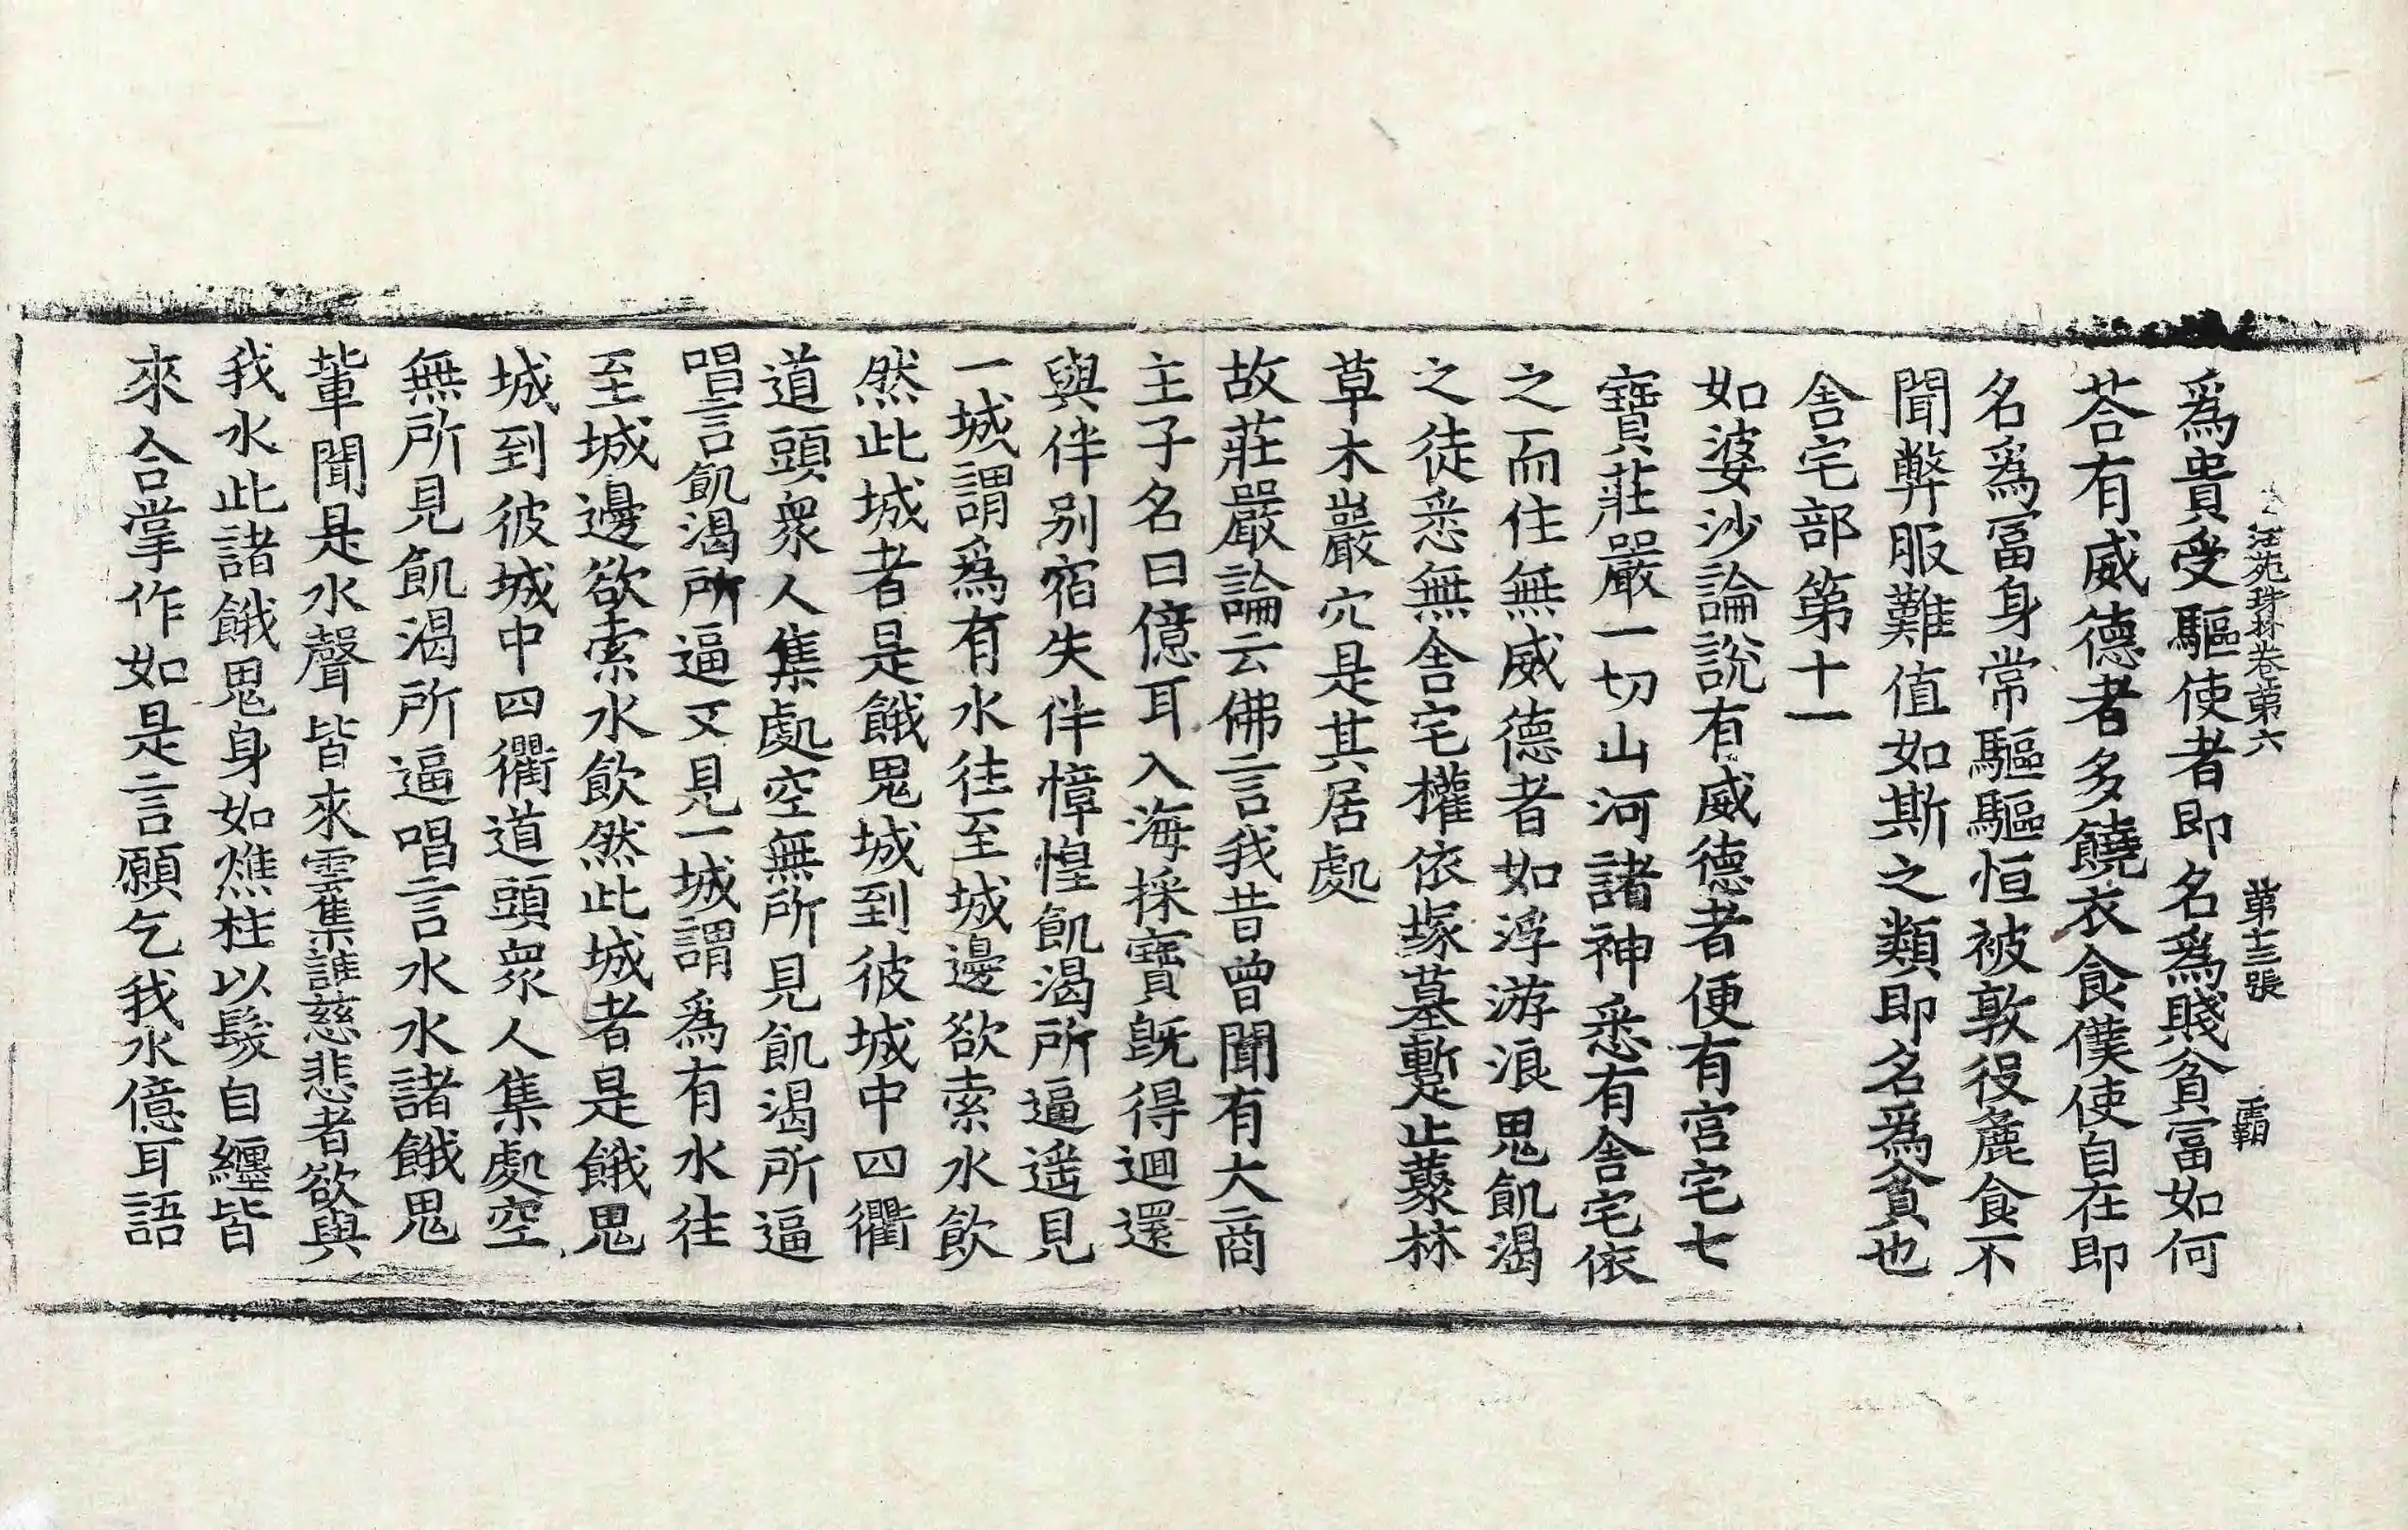 法苑珠林卷第六 第十三張 覇
爲貴受驅使者即名爲賤貧富如何
荅有威德者多饒衣食僕使自在即
名爲冨身常驅驅恒被敦役麁食不
聞弊服難值如斯之類即名爲貧也
舎宅部第十一
如婆沙論説有威德者便有宫宅七
寶莊嚴一切山河諸神悉有舎宅依
之而住無威德者如浮游浪鬼飢渴
之徒悉無舎宅權依塚墓暫止藂林
草木巖穴是其居處
故莊嚴論云佛言我昔曾聞有大商
主子名曰億耳入海採寶旣得迴還
與伴別宿失伴慞惶飢渴所逼遥見
一城謂爲有水往至城邊欲索水飲
然此城者是餓鬼城到彼城中四衢
道頭衆人集處空無所見飢渴所逼
唱言飢渴所逼又見一城謂爲有水往
至城邊欲索水飲然此城者是餓鬼
城到彼城中四衢道頭衆人集處空
無所見飢渴所逼唱言水水諸餓鬼
輩聞是水聲皆來雲集誰慈悲者欲與
我水此諸餓鬼身如燋柱以髮自纏皆
來合掌作如是言願乞我水億耳語